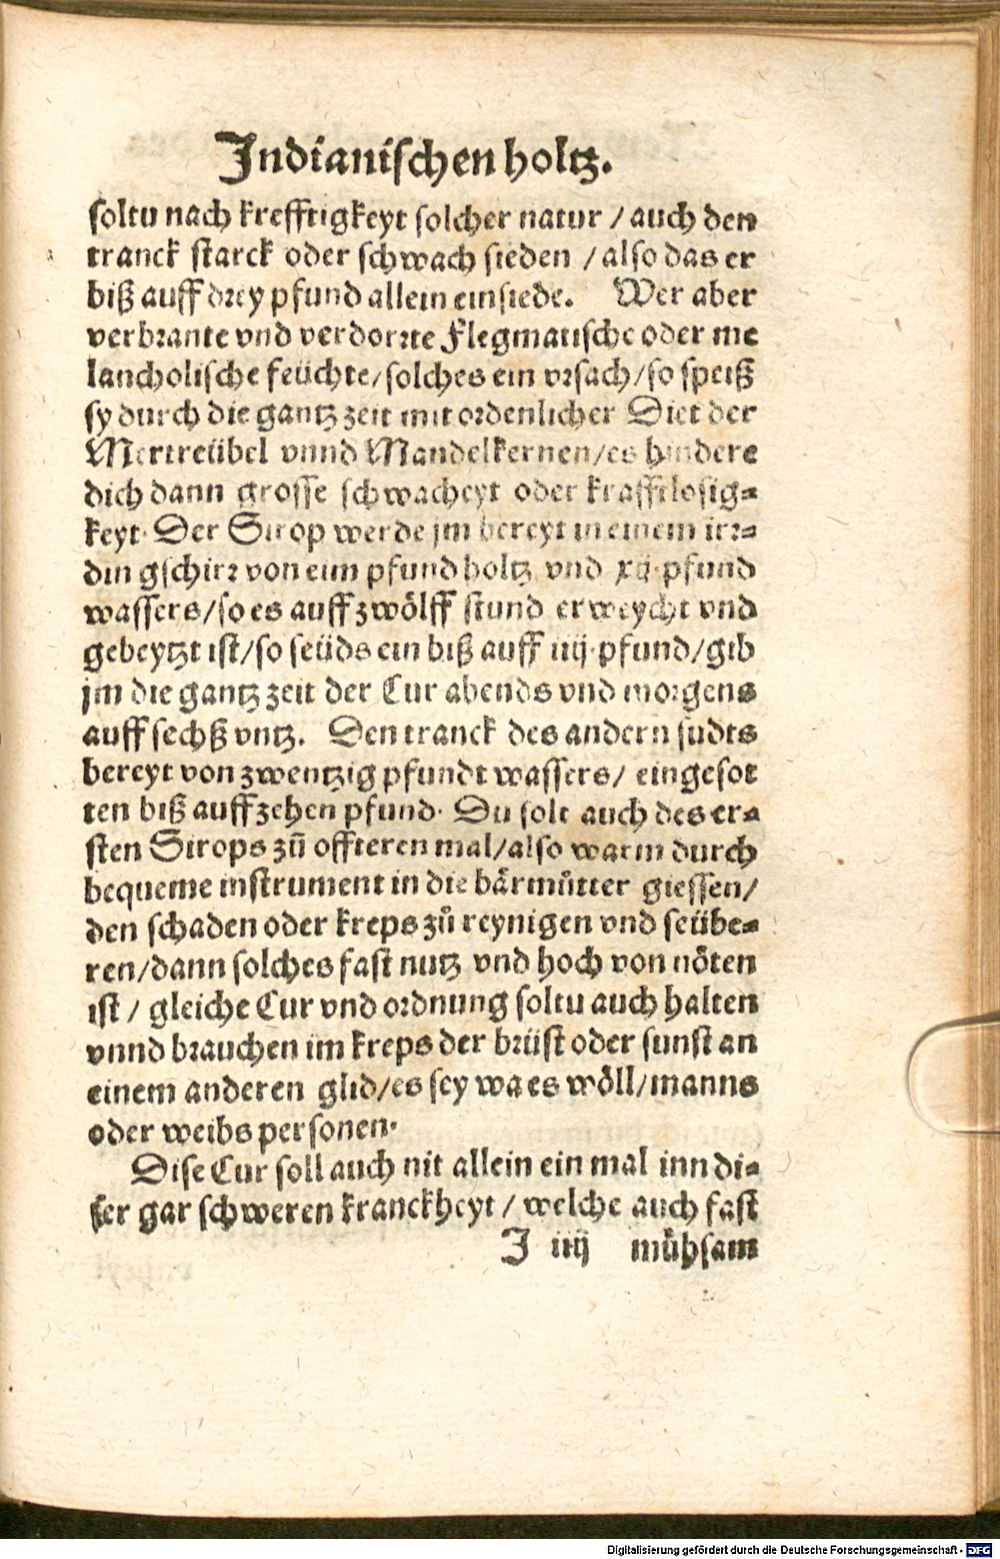 Indianischen holtz.
soltu nach krefftigkeyt solcher natur / auch den
tranck starck oder schwach sieden / also das er
biß auff drey pfund allein einsiede. Wer aber
verbrante vnd verdorrte Flegmatische oder me
lancholische feüchte/solches ein vrsach/so speiß
sy durch die gantz zeit mit ordenlicher Diet der
Mertreübel vnnd Mandelkernen/es hindere
dich dann grosse schwacheyt oder krafftlosig⸗
keyt. Der Sirop werde jm bereyt in einem irr⸗
din gschirr von eim pfund holtz vnd xij. pfund
wassers/so es auff zwölff stund erweycht vnd
gebeytzt ist/so seüds ein biß auff iiij. pfund/gib
jm die gantz zeit der Cur abends vnd morgens
auff sechß vntz. Den tranck des andern sudts
bereyt von zwentzig pfundt wassers/ eingesot
ten biß auff zehen pfund. Du solt auch des er⸗
sten Sirops zů offteren mal/also warm durch
bequeme instrument in die bärmůtter giessen/
den schaden oder kreps zů reynigen vnd seübe⸗
ren/dann solches fast nutz vnd hoch von nöten
ist / gleiche Cur vnd ordnung soltu auch halten
vnnd brauchen im kreps der brüst oder sunst an
einem anderen glid/es sey wa es wöll/manns
oder weibs personen.
Dise Cur soll auch nit allein ein mal inn di⸗
ser gar schweren kranckheyt / welche auch fast
J iiij mühsam
Digitalisierung gefördert durch die Deutsche Forschungsgemeinschaft - DFG